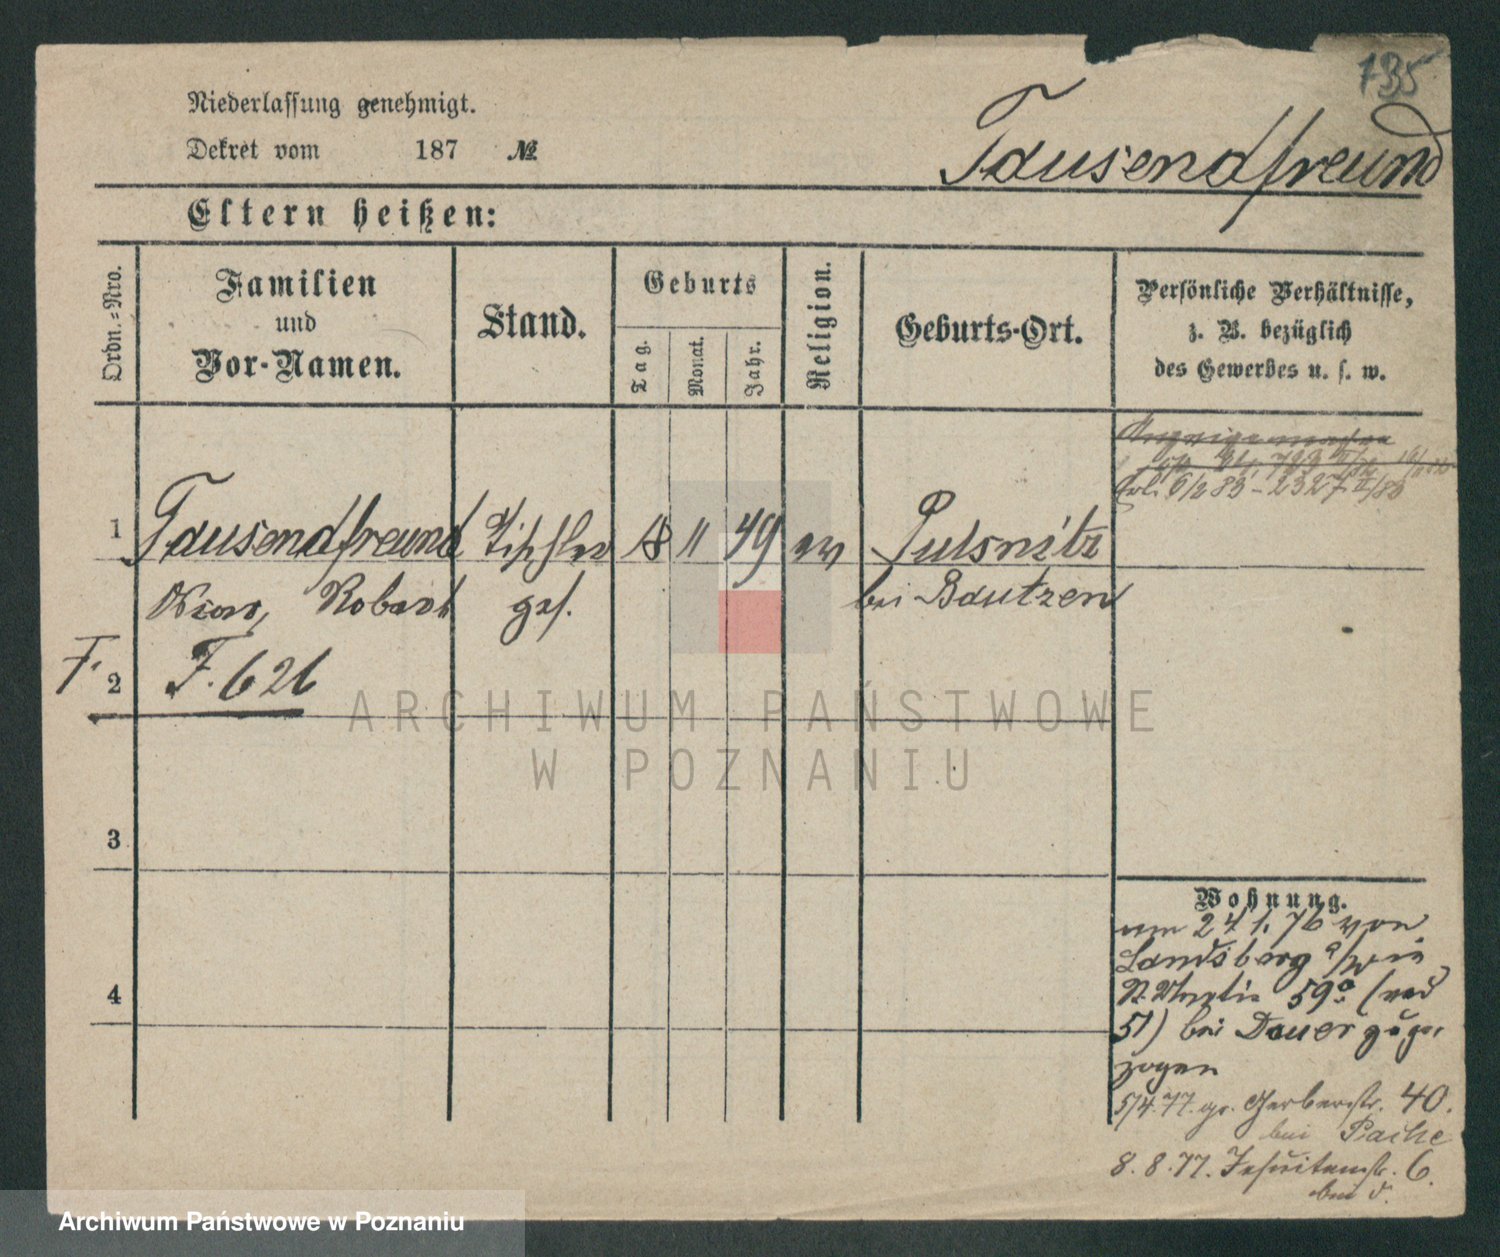 135
Niederlassung genehmigt.
Dekret vom 187 №
Tausendfreund
Eltern heißen:
Ordn.=Nro.
Familien
und
Vor-Namen.
Stand.
Geburts
Tag.
Monat.
Jahr.
Religion.
Geburts-Ort.
Persönliche Verhältnisse,
z. B. bezüglich
des Gewerbes u. s. w.
6/2 83 - 2327 II/83
1 Tausendfreund Tischler 18 11 49 ev Pulsnitz
Robert ges. bei Bautzen
F. 2 F. 626
3
4
Wohnung.
am 24 1. 76 von
Landsberg a/W in
St. Martin 59a (
51) bei Dauer zuge-
zogen
5/4. 77. gr. Gerberstr. 40.
bei Paihe
8. 8. 77. Jesuitenstr. 6.
bei d.
ARCHIWUM PAŃSTWOWE
W POZNANIU
Archiwum Państwowe w Poznaniu